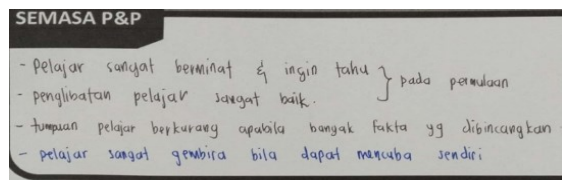 SEMASA P&P
- Pelajar sangat berminat & ingin tahu } pada permulaan
- penglibatan pelajar sangat baik.
- tumpuan pelajar berkurang apabila banyak fakta yg dibincangkan
- pelajar sangat gembira bila dapat mencuba sendiri